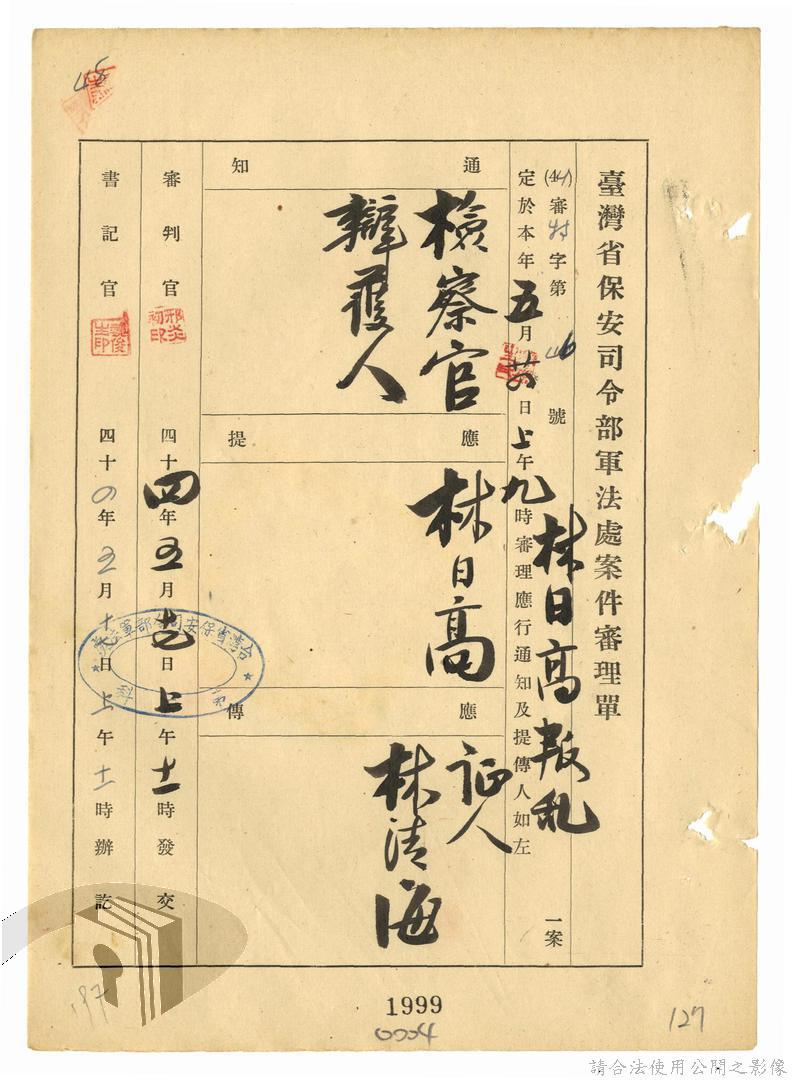 臺灣省保安司令部軍法處案件審理單
(44)審特字第46號 林日高叛乱 一案
定於本年五月廿六日上午九時審理應行通知及提傳人如左
通知
檢察官
辯護人
應提
林日高
應傳
証人
林清海
審判官 邢炎初印 四十四年五月十七日上午十一時發交
書記官 四十四年五月十七日上午十一時辦訖
48
1999
0004
127
187
請合法使用公開之影像